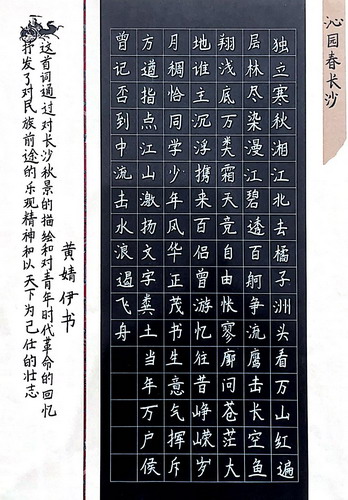 沁园春长沙
独立寒秋湘江北去橘子洲头看万山红遍
层林尽染漫江碧透百舸争流鹰击长空鱼
翔浅底万类霜天竞自由怅寥廓问苍茫大
地谁主沉浮携来百侣曾游忆往昔峥嵘岁
月稠恰同学少年风华正茂书生意气挥斥
方遒指点江山激扬文字粪土当年万户侯
曾记否到中流击水浪遏飞舟
黄婧伊书
这首词通过对长沙秋景的描绘和对青年时代革命的回忆
抒发了对民族前途的乐观精神和以天下为己任的壮志